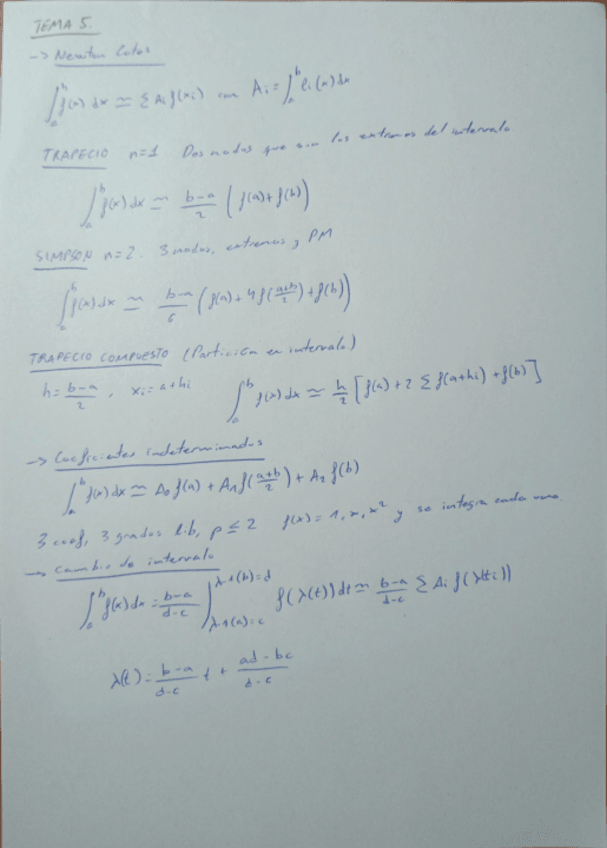 TEMA 5.
-> Newton Cotes
∫_a^b f(x) dx ≃ Σ Ai f(xi) con Ai = ∫_a^b li(x) dx
TRAPECIO n=1 Dos nodos que son los extremos del intervalo.
∫_a^b f(x) dx ≃ b-a/2 (f(a) + f(b))
SIMPSON n=2. 3 nodos, extremos y PM
∫_a^b f(x) dx ≃ b-a/6 (f(a) + 4 f(a+b/2) + f(b))
TRAPECIO COMPUESTO (Partición en intervalo)
h = b-a/2, xi = a+hi ∫_a^b f(x) dx ≃ h/2 [f(a) + 2 Σ f(a+hi) + f(b)]
-> Coeficientes indeterminados
∫_a^b f(x) dx ≃ A0 f(a) + A1 f(a+b/2) + A2 f(b)
3 coef, 3 grados lib, p ≤ 2 f(x) = 1, x, x² y se integra cada uno.
-> Cambio de intervalo
∫_a^b f(x) dx = b-a/d-c ∫_{λ-1(a)=c}^{λ-1(b)=d} f(λ(t)) dt ≃ b-a/d-c Σ Ai f(λ(ti))
λ(t) = b-a/d-c t + ad-bc/d-c